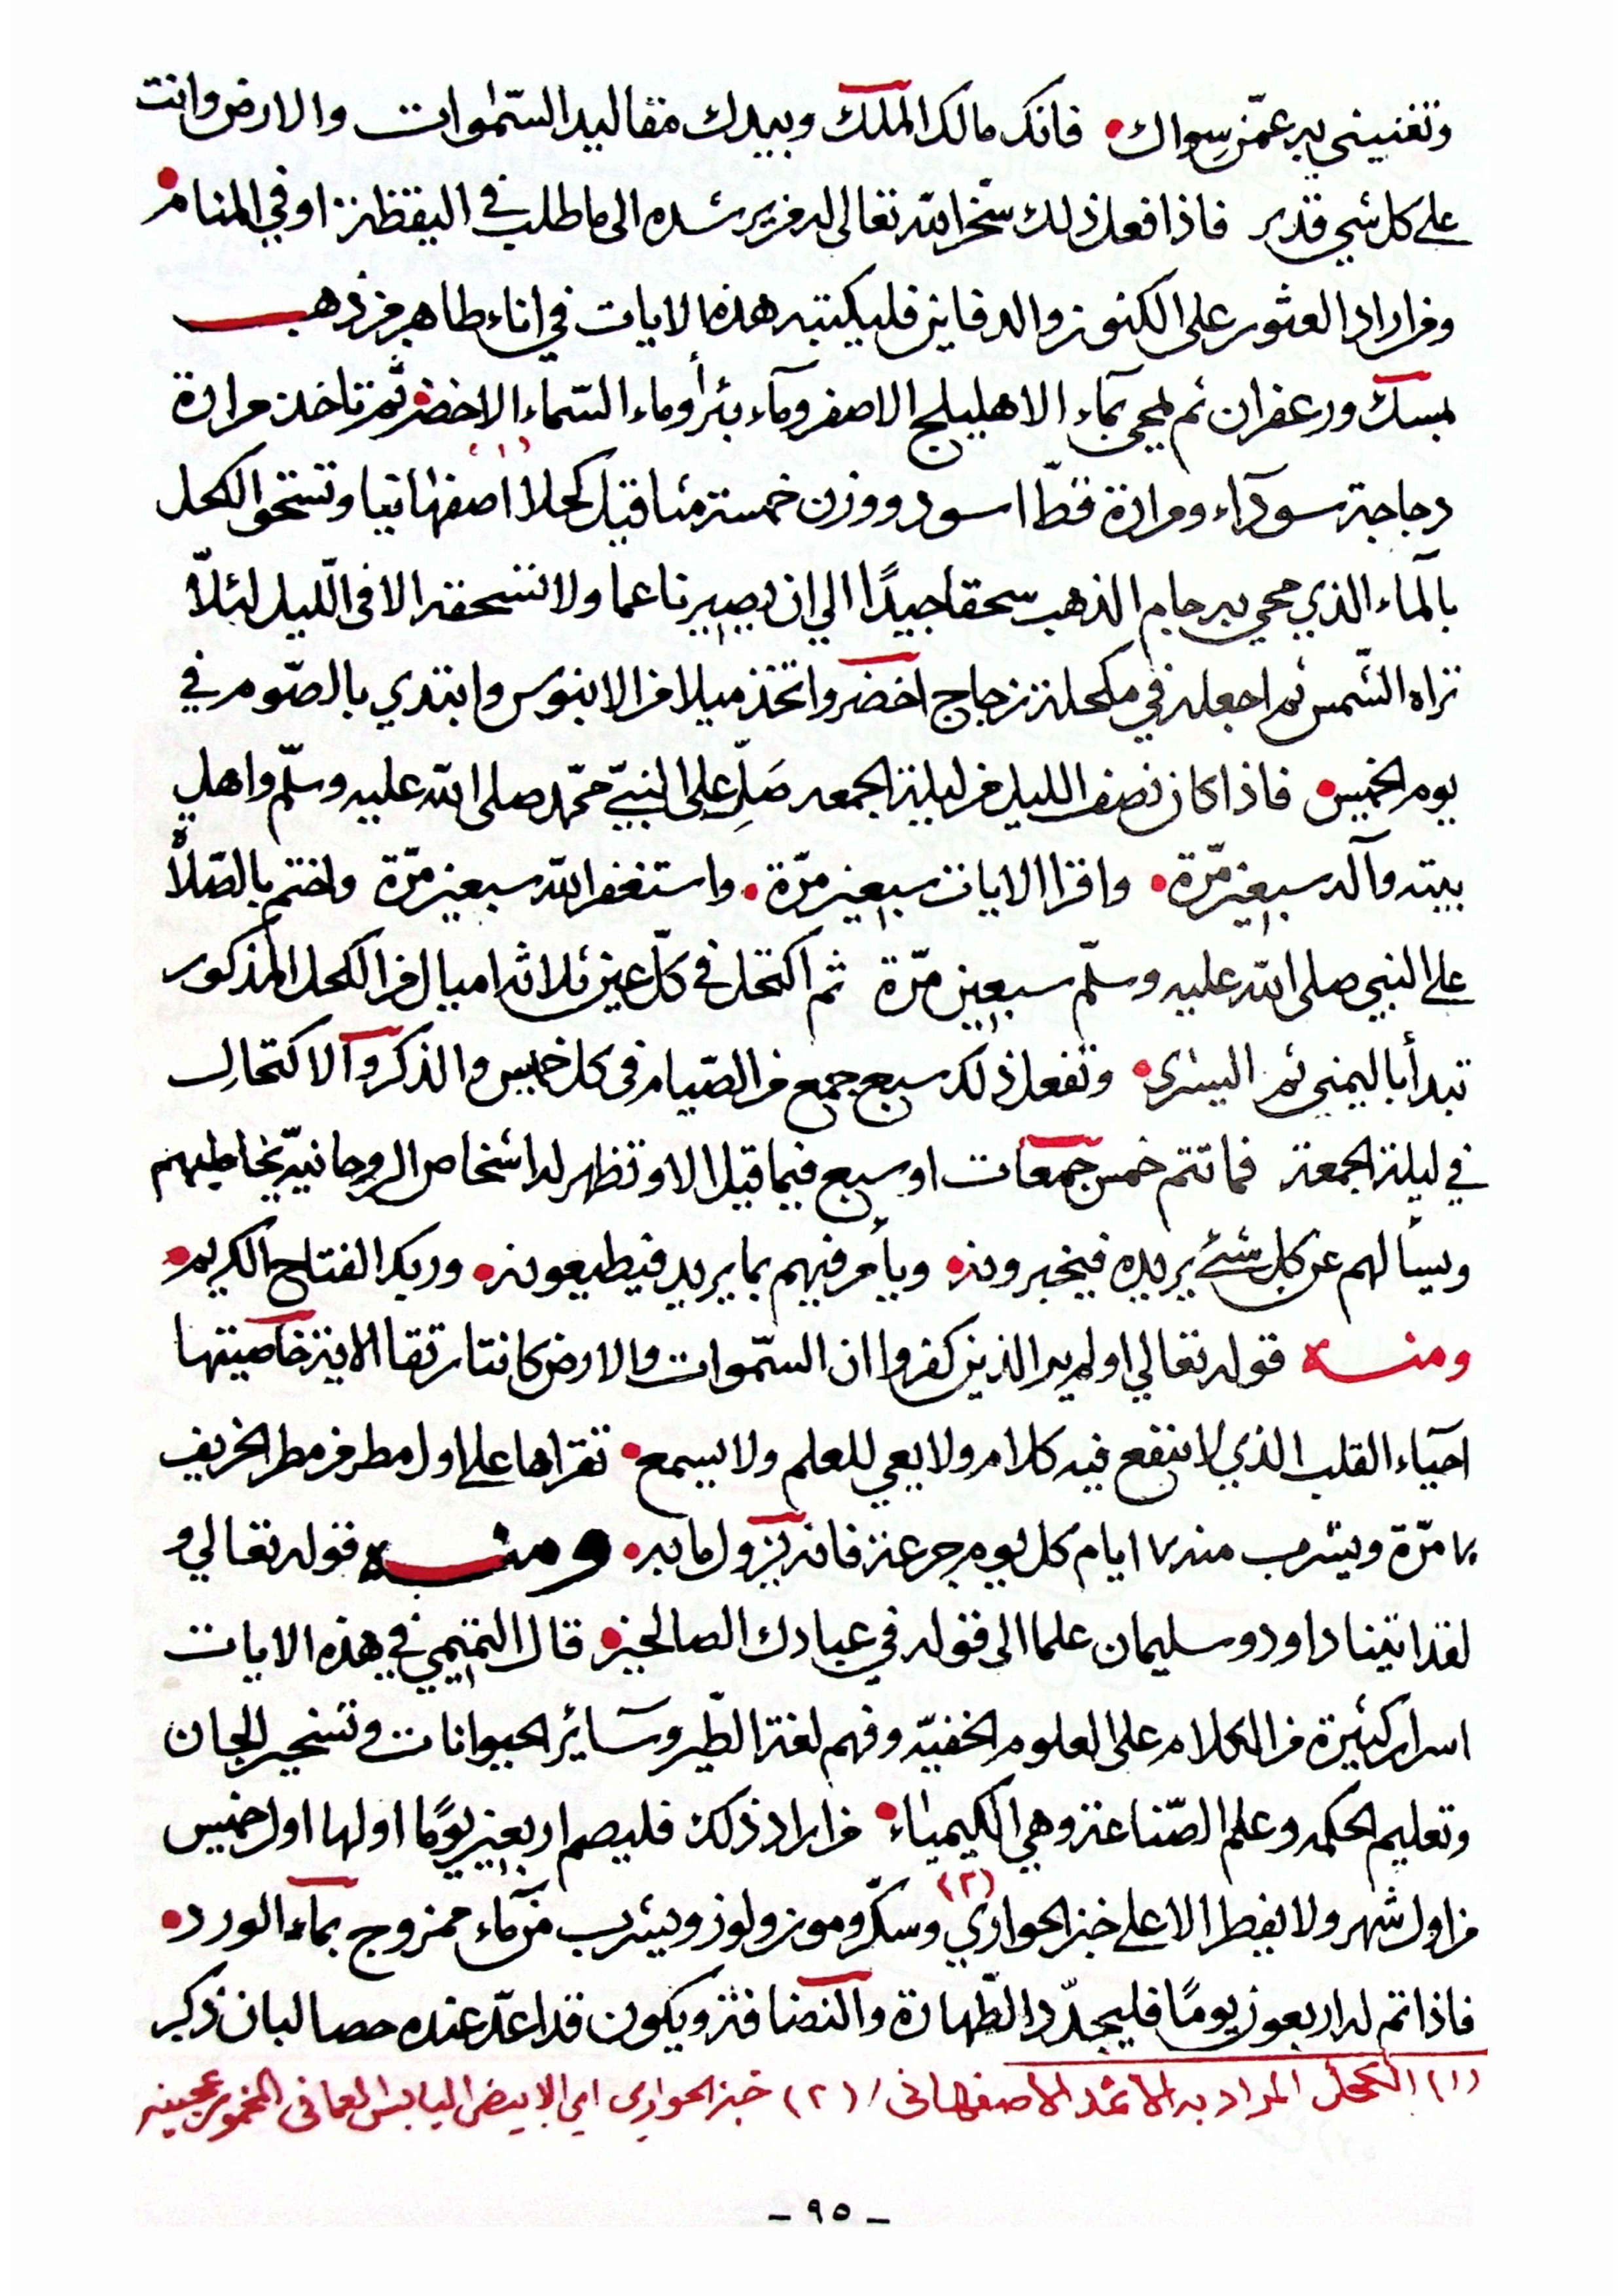 وتغنيني به عمّن سِواك • فانك مالك الملك وبيدك مقاليد السّموات والارض وانت
على كل شي قدير فاذا فعل ذلك سخّر الله تعالى له من يرشده الى ما طلب في اليقظة او في المنام •
ومن اراد العثور على الكنوز والدفاين فليكتب هذه الايات في اناء طاهر من ذهب
بمسك وزعفران ثم يمحي بمآء الاهليلج الاصفر ومآء بئر أو ماء السّماء الاخضر ثمّ تاخذ مرارة
دجاجة سودآء ومرارة قطّ اسود ووزن خمسة مثاقيل كحلا (١) اصفهانيا وتسحق الكحل
بالمآء الذي محي به جام الذهب سحقا جيدًا الي ان يصير ناعما ولا تسحقه الا في اللّيل لئلّا
تراه الشّمس ثم اجعله في مكحلة زجاج اخضر واتخذ ميلا من الابنوس وابتدي بالصّوم في
يوم الخميس • فاذا كان نصف الليل من ليلة الجمعه صَلِّ على النبيّ محمّد صلى الله عليه وسلّم واهل
بيته وآله سبعين مّرة • واقرا الايات سبعين مرّة • واستغفر الله سبعين مرّة واختم بالصّلاة
على النبي صلى الله عليه وسلّم سبعين مّرة ثم اكتحل في كلّ عين ثلاثه اميال من الكحل المذكور
تبدأ باليمنى ثم اليسرى • وتفعل ذلك سبع جمع من الصّيام في كل خميس والذكر والاكتحال
في ليلة الجمعة فما تتم خمس جمعات او سبع فيما قيل الا وتظهر له اشخاص الروحانيّه يخاطبهم
ويسألهم عن كل شئ يريده فيخبرونه • ويأمر فيهم بما يريد فيطيعونه • وربك الفتاح الكريم •
ومنه قوله تعالي اولم ير الذين كفروا ان السّموات والارض كانتا رتقا الاية خاصيتها
احياء القلب الذي لا ينفع فيه كلام ولا يعي للعلم ولا يسمع • تقراها على اول مطر من مطر الخريف
٧٠ مرّة ويشرب منه ٧ ايام كل يوم جرعة فانه يزول ما به • ومنه قوله تعالي و
لقد اتينا داود وسليمان علما الى قوله في عبادك الصالحين • قال التميمي في هذه الايات
اسرار كثيرة من الكلام على العلوم الخفيّه وفهم لغة الطّير وسآئر الحيوانات وتسخير الجان
وتعليم الحكمه وعلم الصّناعة وهي الكيمياء • من اراد ذلك فليصم اربعين يومًا اولها اول خميس
من اول شهر ولا يفطر الا على خبز الحواري (٢) وسكّر وموز ولوز ويشرب من مآء ممزوج بمآء الورد •
فاذا تم له اربعون يومًا فليجدّد الطّهارة والنضافة ويكون قد اعدّ عنده حصا لبان ذكر
(١) الكحل المراد به الاثمد الاصفهاني / (٢) خبز الحواري اي الابيض اليابس المخمور عجينه
- ٩٥ -